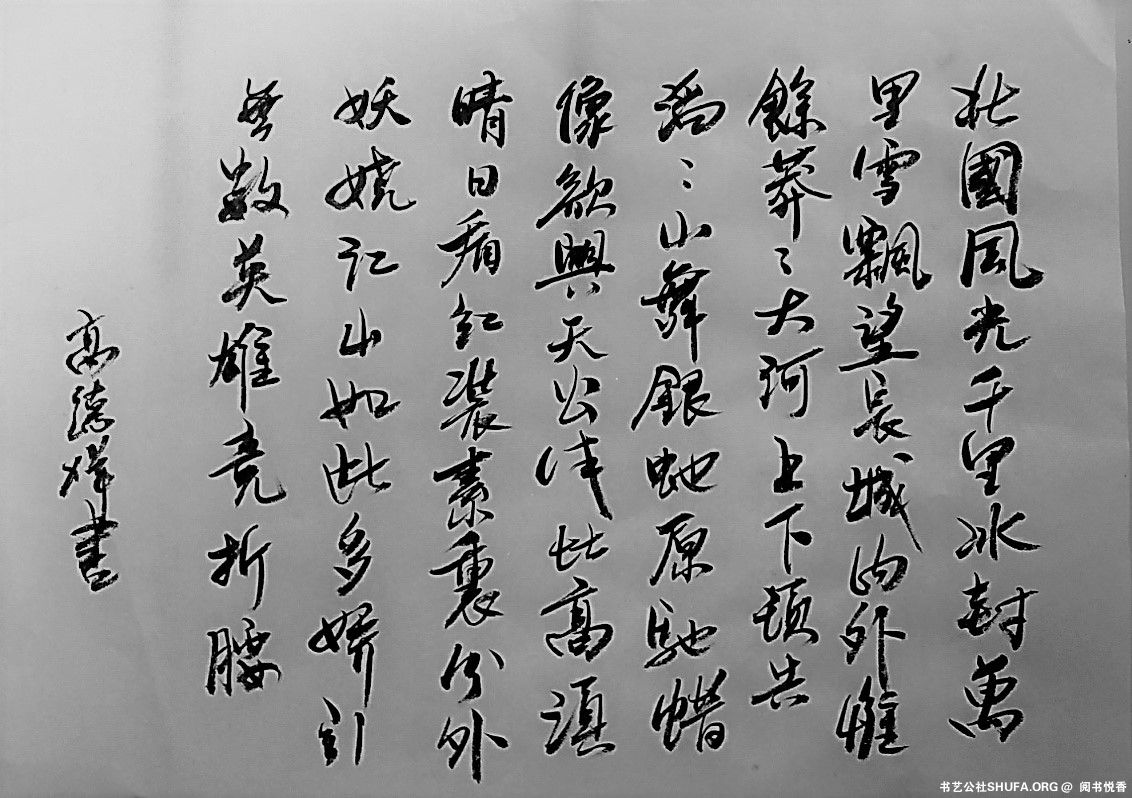 北國風光千里冰封萬
里雪飄望長城内外惟
餘莽〻大河上下頓失
滔〻山舞銀蛇原馳蜡
像欲與天公試比高須
晴日看紅裝素裹分外
妖娆江山如此多嬌引
無数英雄竞折腰
高德書
书艺公社SHUFA.ORG @ 阅书悦香